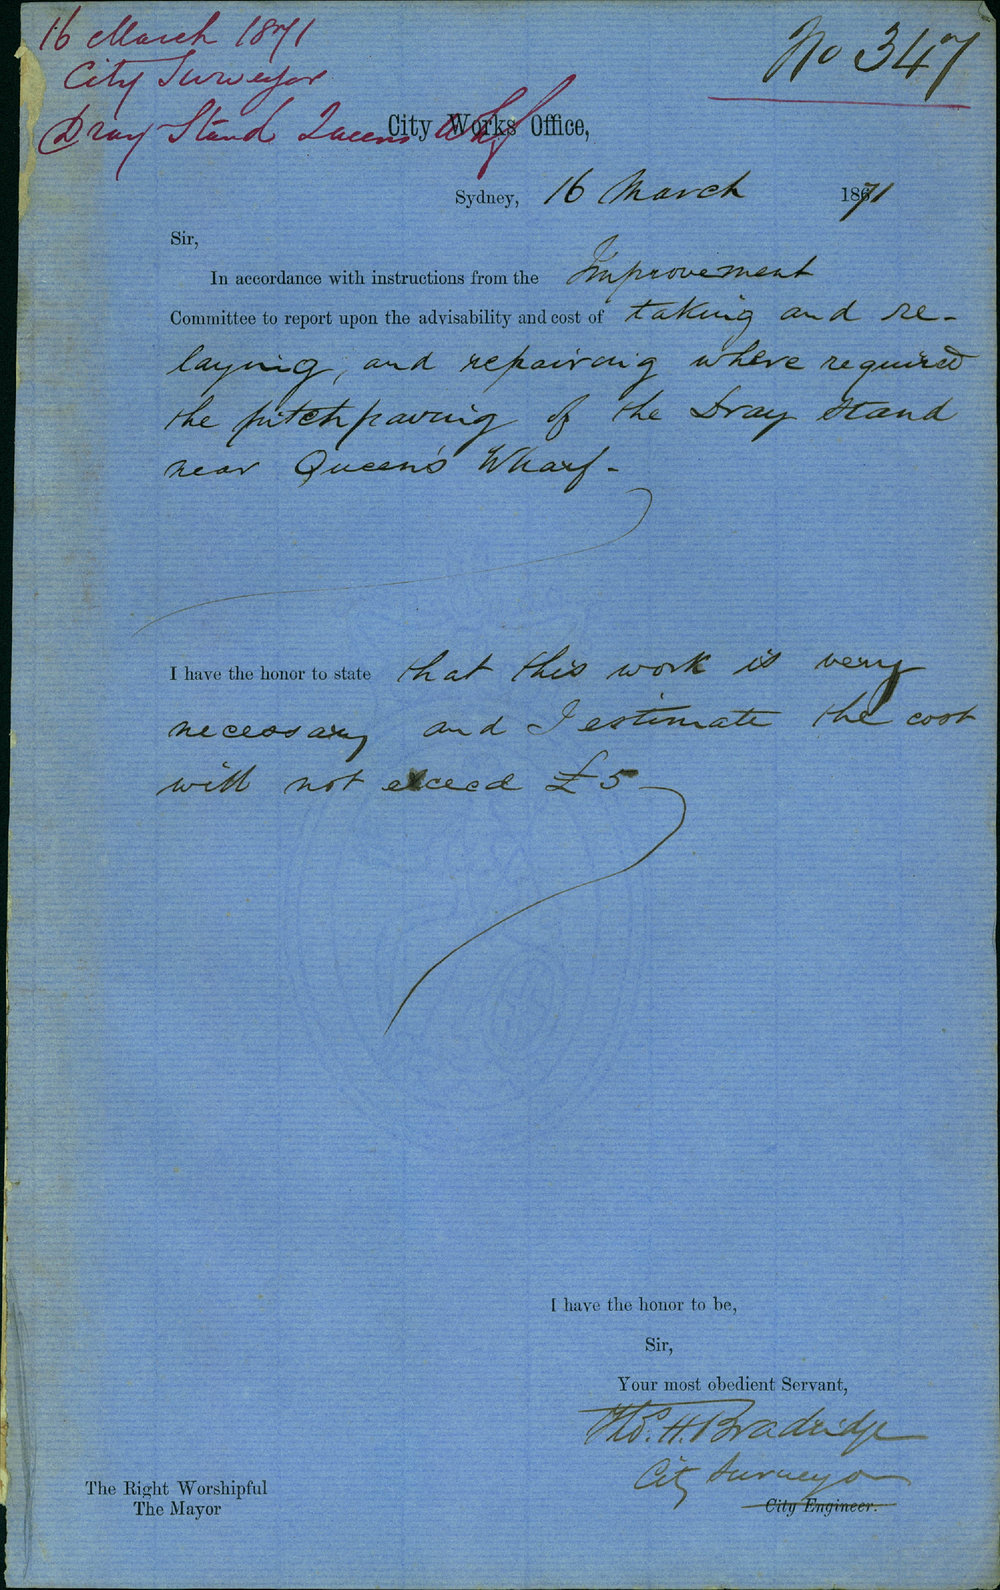 16 March 1871
City Surveyor
Dray Stand Queens Whf
No 347
City Works Office,
Sydney, 16 March 1871
Sir,
In accordance with instructions from the Improvement
Committee to report upon the advisability and cost of taking and re-
laying, and repairing where required
the pitchpaving of the Dray Stand
near Queen's Wharf -
I have the honor to state that this work is very
necessary and I estimate the cost
will not exceed £5
I have the honor to be,
Sir,
Your most obedient Servant,
Thos. H. Bradridge
City Surveyor
City Engineer.
The Right Worshipful
The Mayor